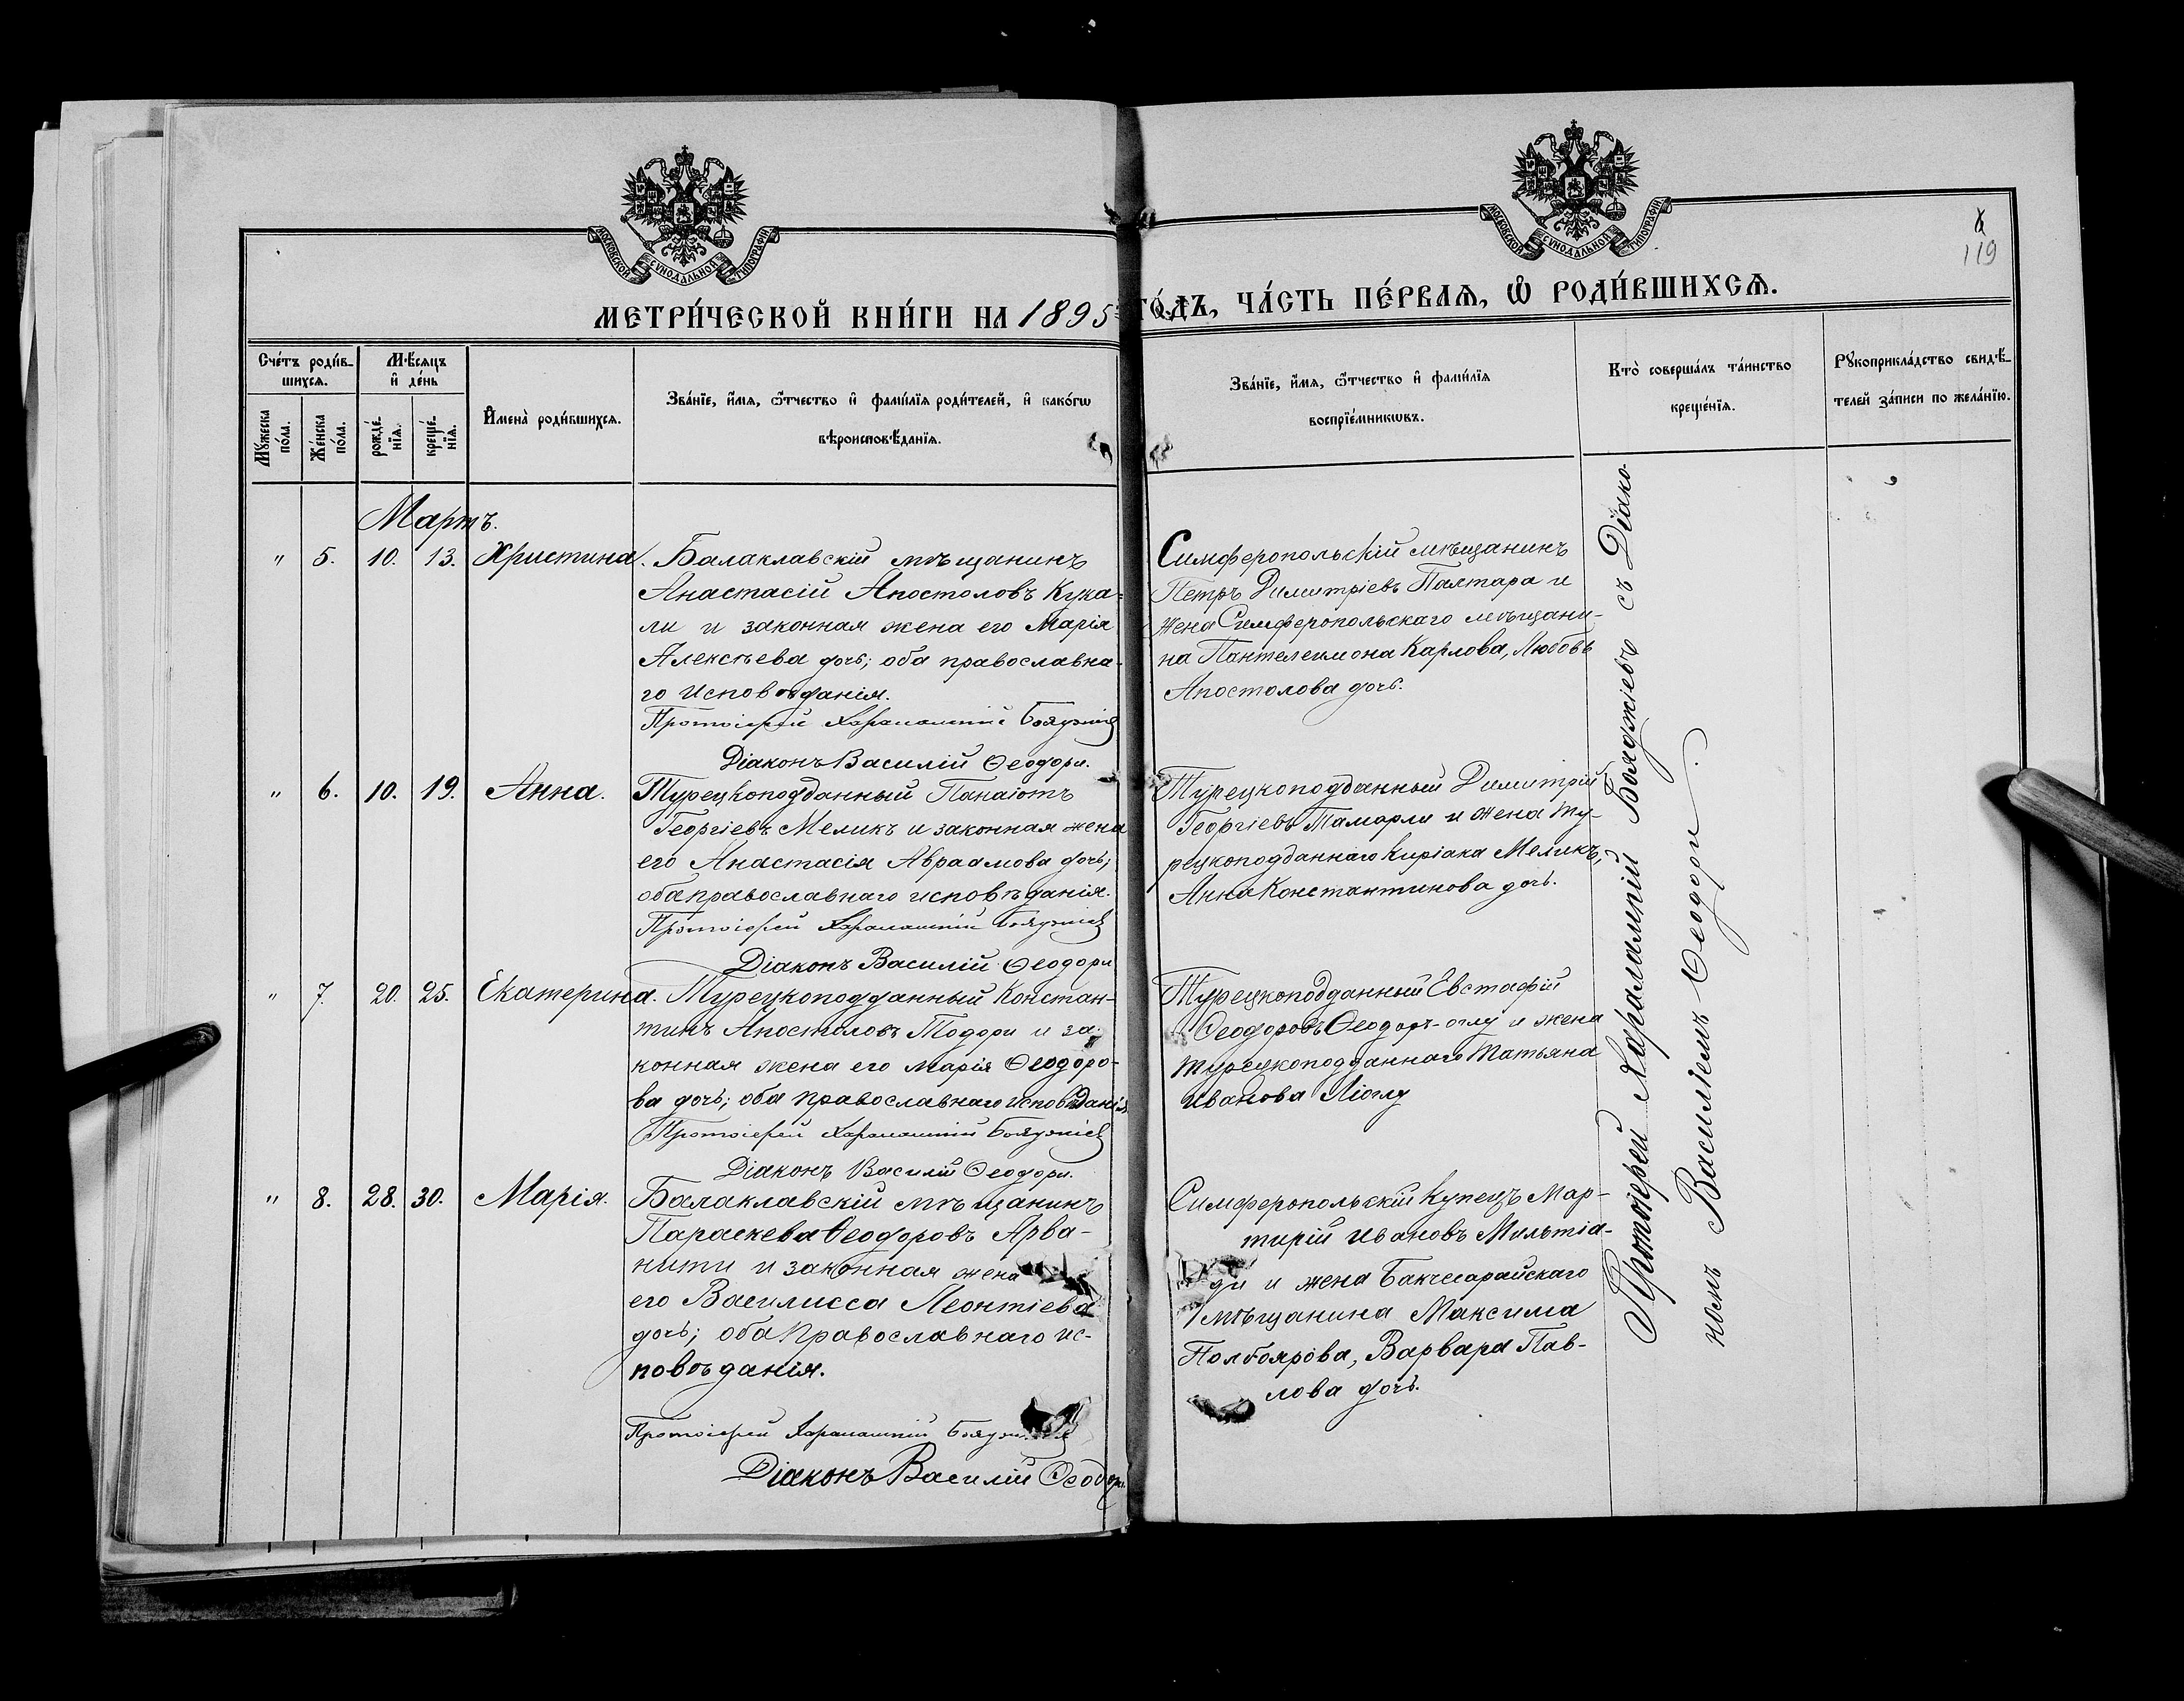 МОСКОВСКОЙ СѴНОДАЛЬНОЙ ТИПОГРАФІИ
МОСКОВСКОЙ СѴНОДАЛЬНОЙ ТИПОГРАФІИ
119
МЕТРИ́ЧЕСКОЙ КНИ́ГИ НА 1895 ГО́ДЪ, ЧА́СТЬ ПЕ́РВАѦ, Ѡ҆ РОДИ́ВШИХСѦ.
Сче́тъ роди́в-
шихсѧ.
Мꙋжеска
по́ла.
Же́нска
по́ла.
Мѣ́сѧцъ
и҆ де́нь
рожде́-
нїѧ.
креще́-
нїѧ.
И҆мена̀ роди́вшихсѧ.
Зва́нїе, и҆́мѧ, ѻ҆́тчество и҆ фами́лїѧ роди́телей, и҆ како́гѡ
вѣроисповѣ́данїѧ.
Зва́нїе, и҆́мѧ, ѻ҆́тчество и҆ фами́лїѧ
воспрїе́мникѡвъ.
Кто̀ соверша́лъ та́инство
креще́нїѧ.
Рꙋкоприкла́дство свидѣ́-
телей за́писи по жела́нїю.
Мартъ.
" 5. 10. 13. Христина. Балаклавскій мѣщанинъ
Анастасій Апостоловъ Кука-
ли и законная жена его Марія
Алексѣева дочь; оба православна-
го исповѣданія.
Протоіерей Харалампій Бояджіев
Діаконъ Василій Ѳеодори.
Симферопольскій мѣщанинъ
Петръ Димитріевъ Палтара и
жена Симферопольскаго мѣщани-
на Пантелеимона Карлова, Любовь
Апостолова дочь.
" 6. 10. 19. Анна. Турецкоподданный Панаіотъ
Георгіевъ Меликъ и законная жена
его Анастасія Авраамова дочь;
оба православнаго исповѣданія.
Протоіерей Харалампій Бояджіев
Діаконъ Василій Ѳеодори
Турецкоподданный Димитрій
Георгіевъ Тамарли и жена ту-
рецкоподданнаго Киріака Меликъ,
Анна Константинова дочь.
" 7. 20. 25. Екатерина. Турецкоподданный Констан-
тинъ Апостоловъ Тодори и за-
конная жена его Марія Ѳеодоро-
ва дочь; оба православнаго исповѣданія
Протоіерей Харалампій Бояджіев
Діаконъ Василій Ѳеодори.
Турецкоподданный Евстафій
Ѳеодоровъ Ѳеодоръ-оглу и жена
турецкоподданнаго Татьяна
Иванова Ліоглу
" 8. 28. 30. Марія. Балаклавскій мѣщанинъ
Параскева Ѳеодоровъ Арва-
нити и законная жена
его Василисса Леонтіева
дочь; оба православнаго ис-
повѣданія.
Протоіерей Харалампій
Діаконъ Василій Ѳеодори
Симферопольскій купецъ Мар-
тирій Ивановъ Мильтіа-
ди и жена Бакчесарайскаго
мѣщанина Максима
Полбоярова, Варвара Пав-
лова дочь.
Протоіерей Харалампій Бояджіевъ съ Діако-
номъ Василіемъ Ѳеодори.